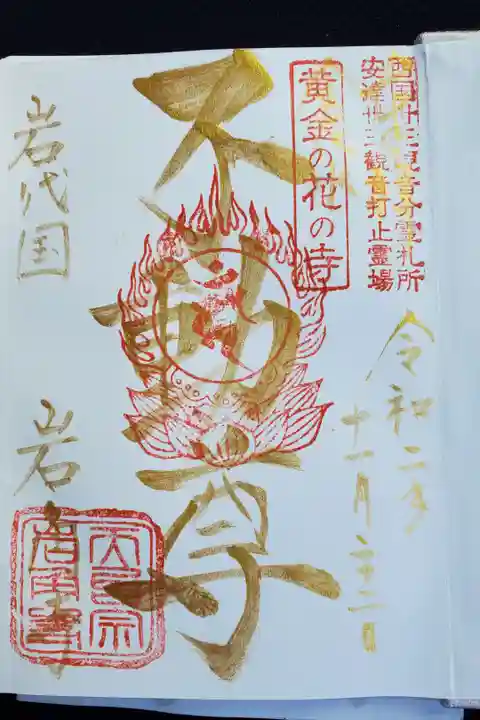 西国卅三観音分霊札所
安達卅三觀音打止霊場
黄金の花の寺
令和二年
十一月二十二日
不動尊
岩代国 岩角寺
天台宗
岩角寺